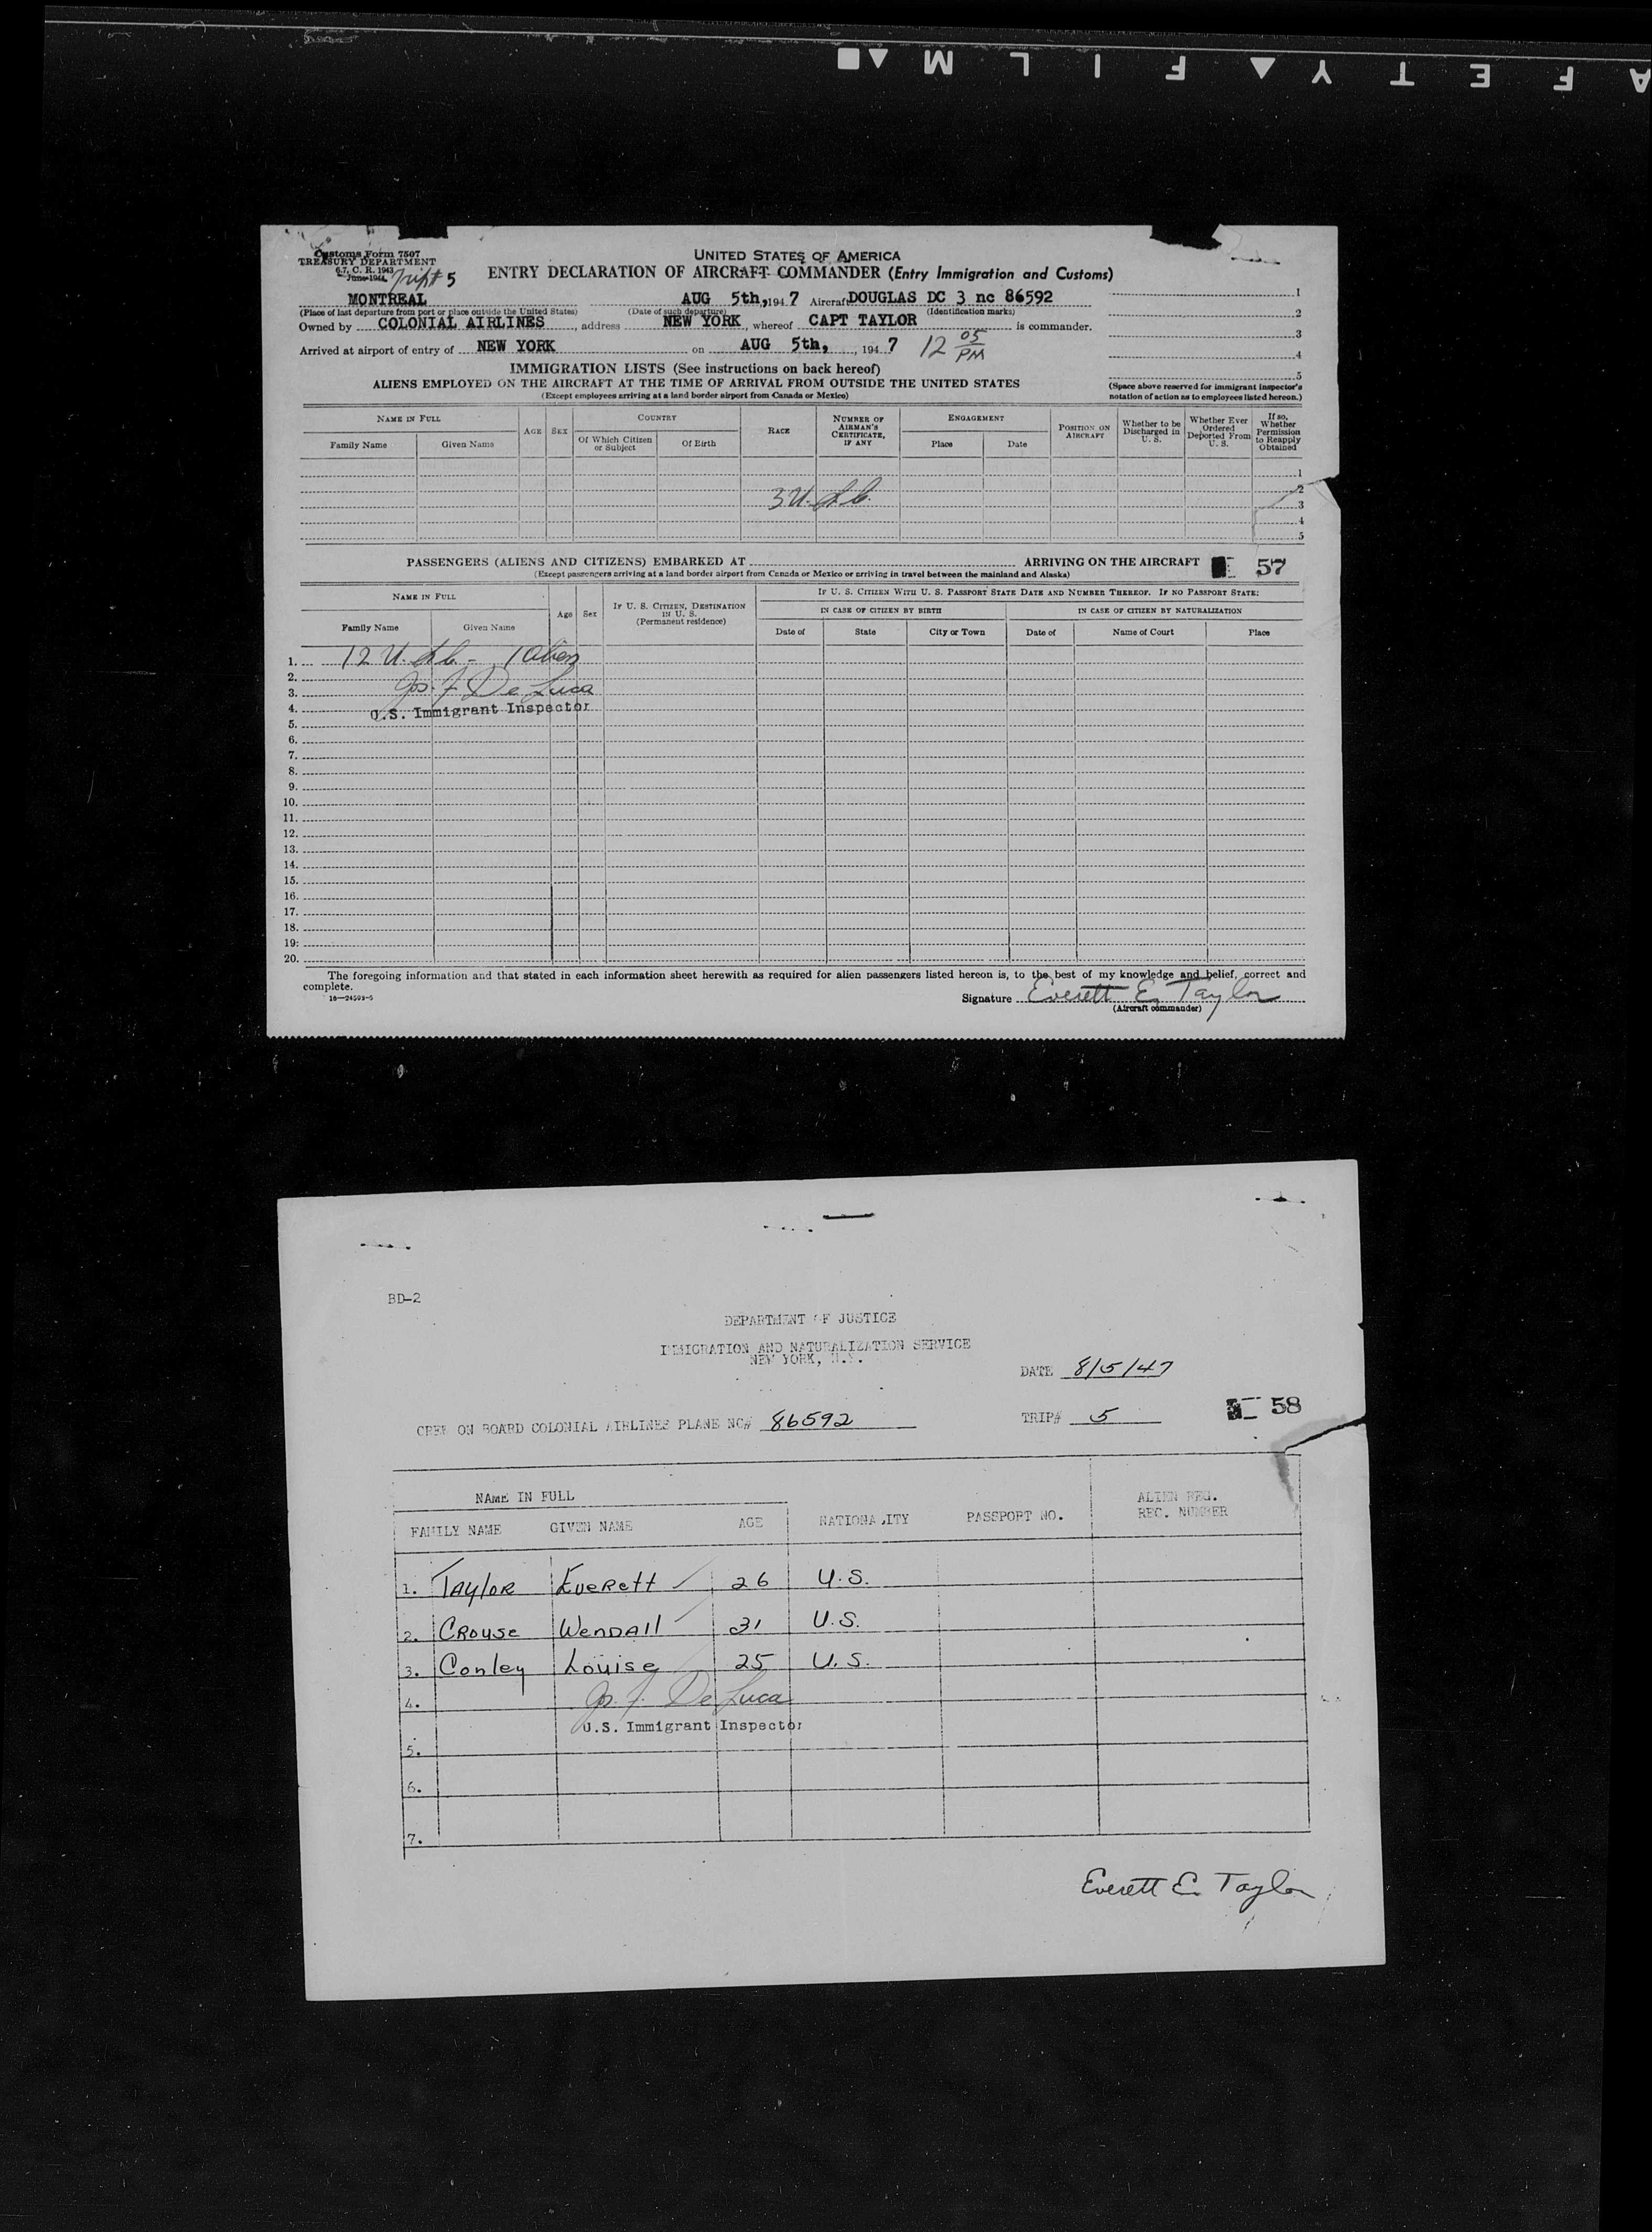 SAFETY FILM
Customs Form 7507
TREASURY DEPARTMENT
6.7, C. R. 1943
June 1944
Trip# 5
UNITED STATES OF AMERICA
ENTRY DECLARATION OF AIRCRAFT COMMANDER (Entry Immigration and Customs)
MONTREAL AUG 5th, 1947 Aircraft DOUGLAS DC 3 nc 86592
(Place of last departure from port or place outside the United States) (Date of such departure) (Identification marks)
Owned by COLONIAL AIRLINES, address NEW YORK, whereof CAPT TAYLOR is commander.
Arrived at airport of entry of NEW YORK on AUG 5th, 1947 12 05 PM
1
2
3
4
5
(Space above reserved for immigrant inspector's notation of action as to employees listed hereon.)
IMMIGRATION LISTS (See instructions on back hereof)
ALIENS EMPLOYED ON THE AIRCRAFT AT THE TIME OF ARRIVAL FROM OUTSIDE THE UNITED STATES
(Except employees arriving at a land border airport from Canada or Mexico)
NAME IN FULL
Family Name Given Name
AGE SEX
COUNTRY
Of Which Citizen or Subject Of Birth
RACE
NUMBER OF AIRMAN'S CERTIFICATE, IF ANY
ENGAGEMENT
Place Date
POSITION ON AIRCRAFT
Whether to be Discharged in U. S.
Whether Ever Ordered Deported From U. S.
If so, Whether Permission to Reapply Obtained
1
2
3 U.S.C.
3
4
5
PASSENGERS (ALIENS AND CITIZENS) EMBARKED AT ARRIVING ON THE AIRCRAFT 57
(Except passengers arriving at a land border airport from Canada or Mexico or arriving in travel between the mainland and Alaska)
NAME IN FULL
Family Name Given Name
Age Sex
IF U. S. CITIZEN, DESTINATION IN U. S.
(Permanent residence)
IF U. S. CITIZEN WITH U. S. PASSPORT STATE DATE AND NUMBER THEREOF. IF NO PASSPORT STATE:
IN CASE OF CITIZEN BY BIRTH IN CASE OF CITIZEN BY NATURALIZATION
Date of State City or Town Date of Name of Court Place
1. 12 U.S.C. - 1 Alien
2.
3. Jos. F. De Luca
4. U.S. Immigrant Inspector
5.
6.
7.
8.
9.
10.
11.
12.
13.
14.
15.
16.
17.
18.
19.
20.
The foregoing information and that stated in each information sheet herewith as required for alien passengers listed hereon is, to the best of my knowledge and belief, correct and
complete.
16—24593-5
Signature Everett E. Taylor
(Aircraft commander)
BD-2
DEPARTMENT OF JUSTICE
IMMIGRATION AND NATURALIZATION SERVICE
NEW YORK, N.Y.
DATE 8/5/47
CREW ON BOARD COLONIAL AIRLINES PLANE NC# 86592 TRIP# 5 58
NAME IN FULL
FAMILY NAME GIVEN NAME AGE NATIONALITY PASSPORT NO. ALIEN REG. REC. NUMBER
1. Taylor Everett 26 U.S.
2. Crouse Wendall 31 U.S.
3. Conley Louise 25 U.S.
4. Jos. F. De Luca
U.S. Immigrant Inspector
5.
6.
7.
Everett E. Taylor